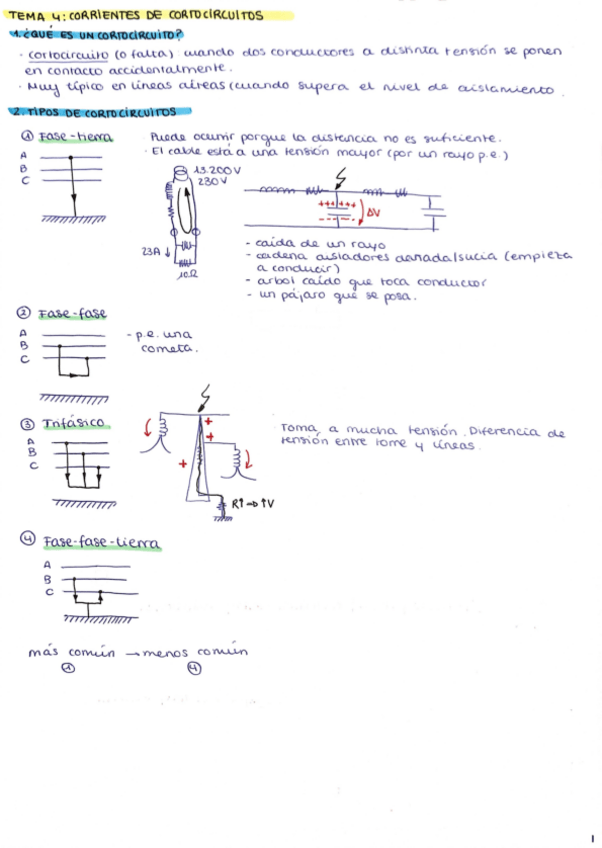 TEMA 4: CORRIENTES DE CORTOCIRCUITOS
1. ¿QUÉ ES UN CORTOCIRCUITO?
· Cortocircuito (o falta) cuando dos conductores a distinta tensión se ponen
en contacto accidentalmente.
· Muy típico en líneas aéreas (cuando supera el nivel de aislamiento.
2. TIPOS DE CORTOCIRCUITOS
① Fase-tierra
· Puede ocurrir porque la distancia no es suficiente.
· El cable está a una tensión mayor (por un rayo p.e.)
A
B
C
13.200V
230V
+++ +++
--- ---
ΔV
23A ↓
10Ω
- caída de un rayo
- cadena aisladores dañada/sucia (empieza
a conducir)
- arbol caído que toca conductor
- un pájaro que se posa.
② Fase-fase
A
B
C
- p.e. una
cometa.
③ Trifásico
A
B
C
+
+
+
R↑→↑V
Toma, a mucha tensión. Diferencia de
tensión entre torre y líneas.
④ Fase-fase-tierra
A
B
C
más común → menos común
① ④
1